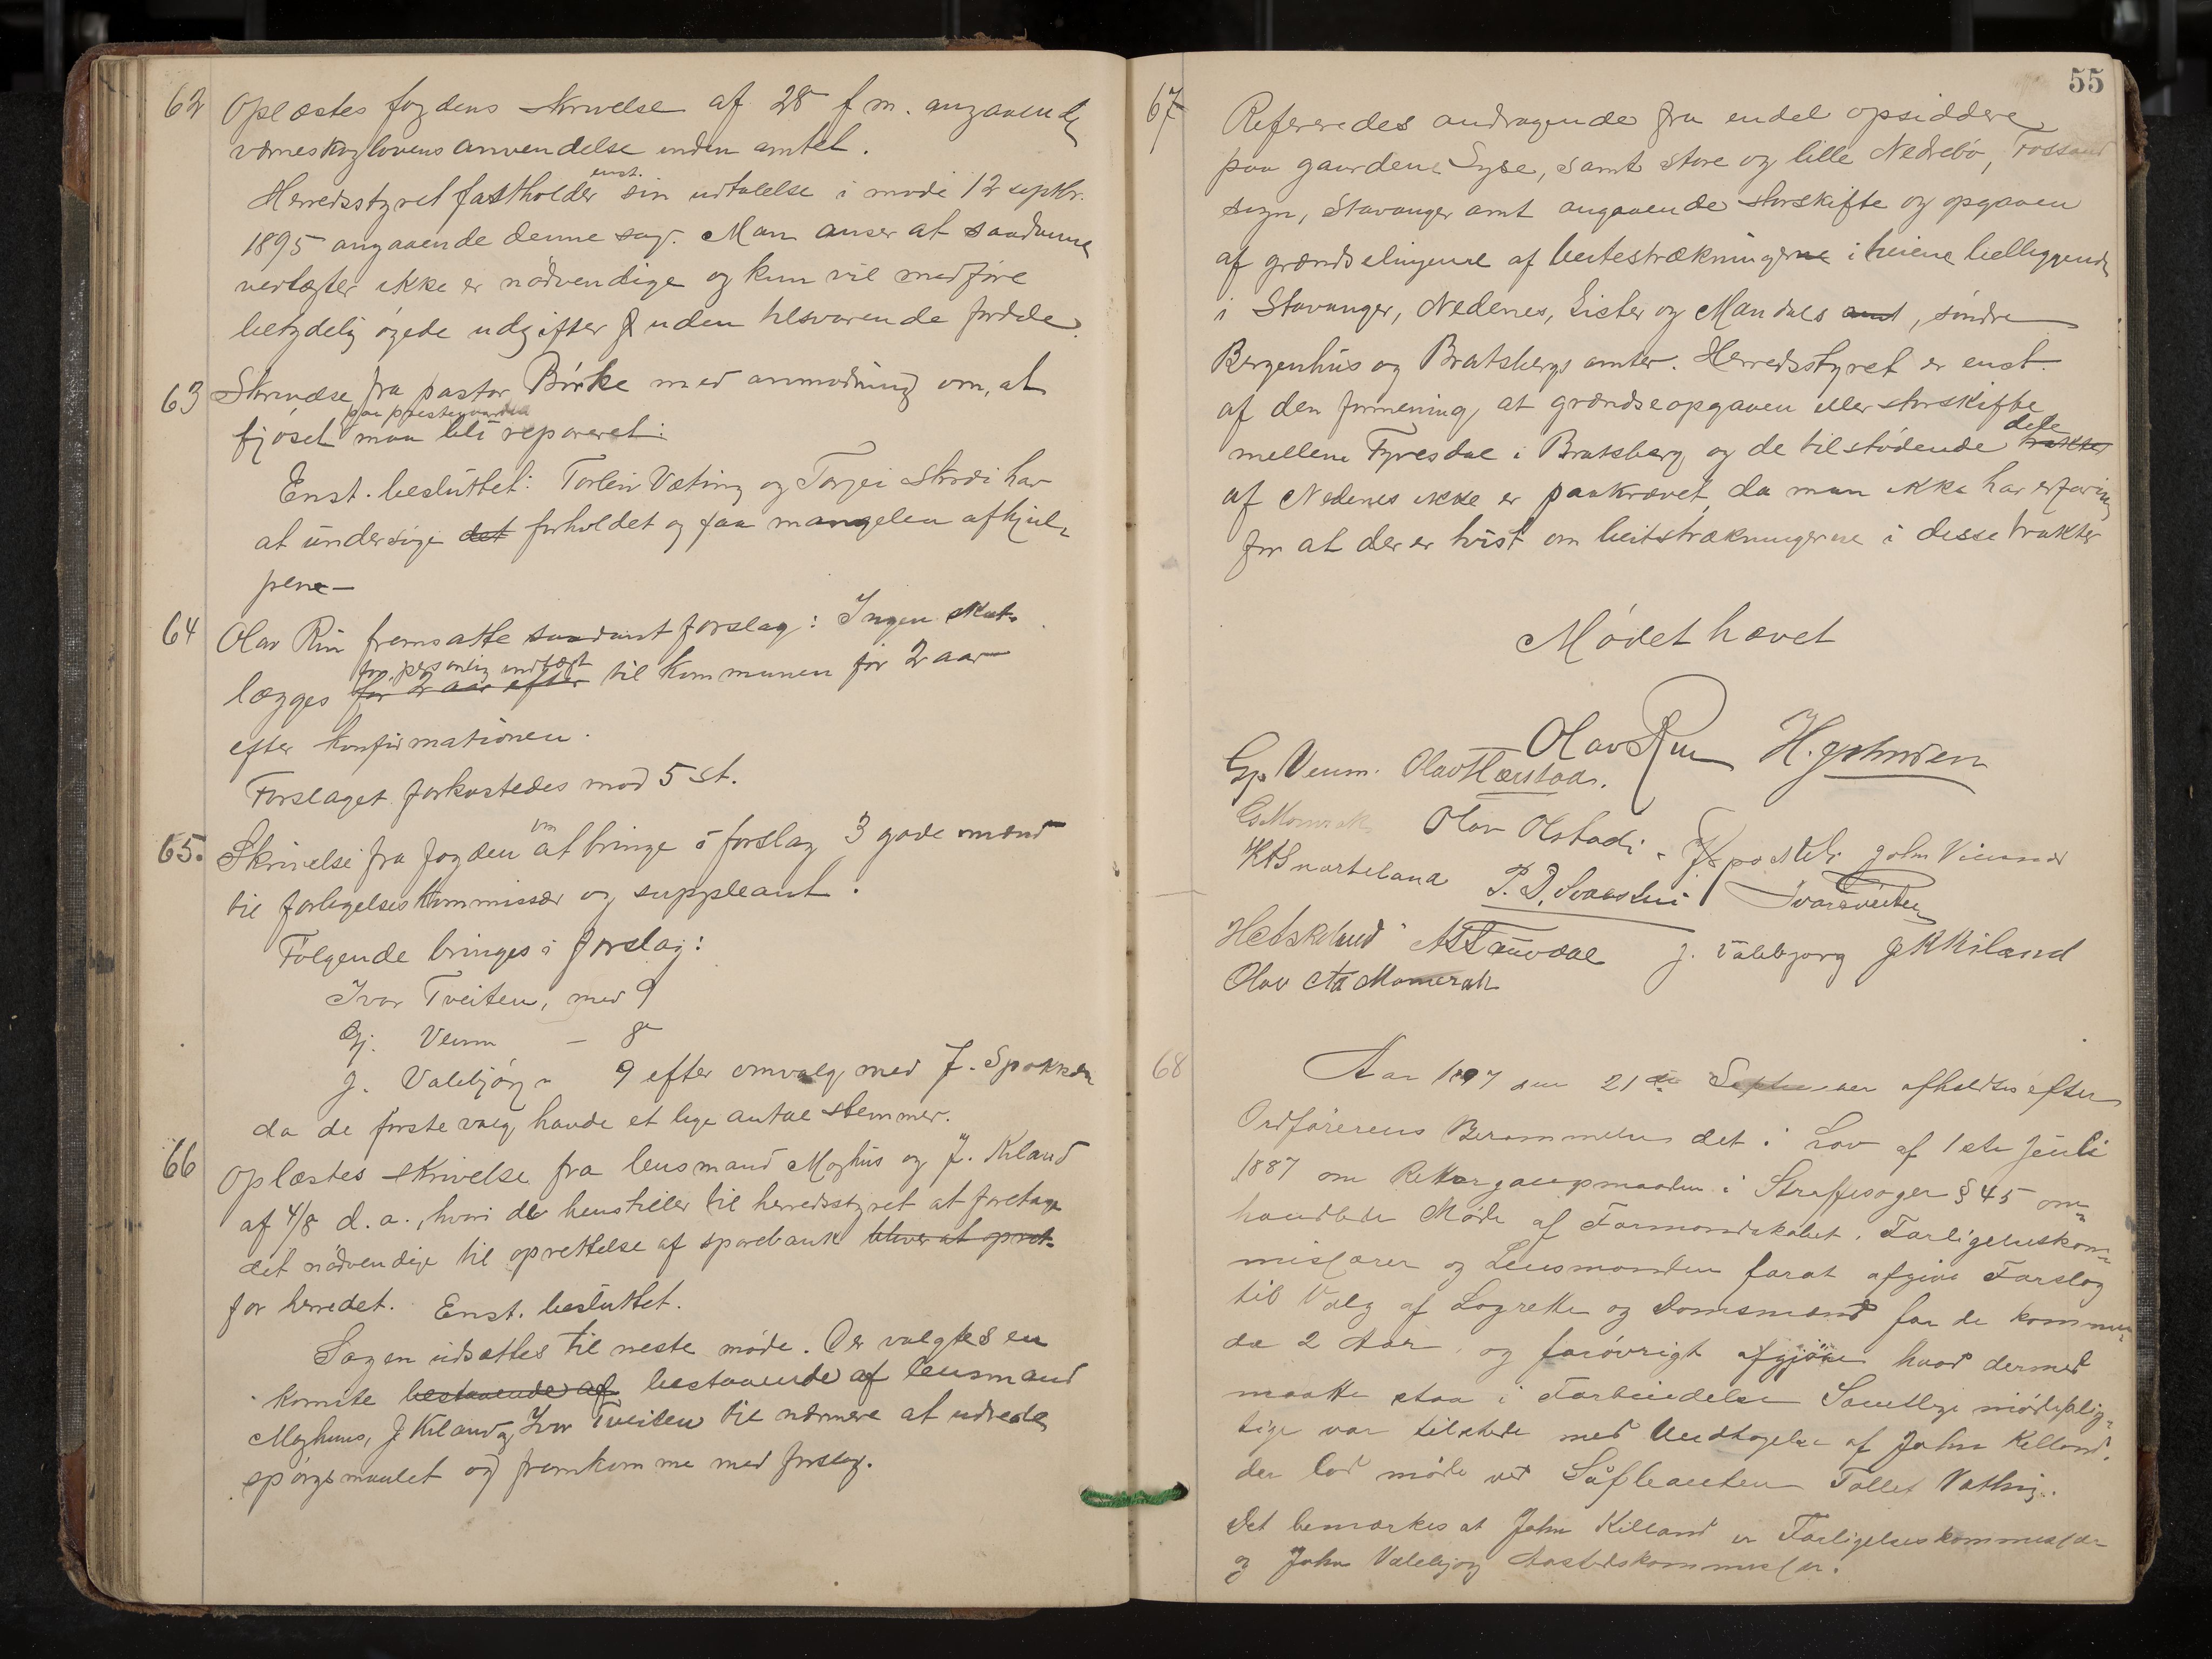 62 Oplæstes fogdens skrivelse af 28 f m. angaaende
værneskoglovens anvendelse inden amtet.
Herredsstyret fastholder enst. sin udtalelse i møde 12 septbr.
1895 angaaende denne sag. Man anser at saadanne
vedtægter ikke er nødvendige og kun vil medføre
betydelig øgede udgifter uden tilsvarende fordele.
63 Skrivelse fra pastor Børke med anmodning om, at
fjøset paa prestegaarden maa bli repareret:
Enst. besluttet: Torleiv Væting og Torjei Skrædi har
at undersøge det forholdet og faa mangelen afhjul-
pene—
64 Olav Rui fremsatte saadant forslag: Ingen skat
lægges for 2 aar efter for personlig indtægt til kommunen før 2 aar
efter konfirmationen.
Forslaget forkastedes mod 5 st.
65. Skrivelse fra fogden om at bringe i forslag 3 gode mænd
til forligelseskommissær og suppleant.
Følgende bringes i forslag:
Ivar Tveiten, med 9
Gj. Veum — 8
J. Valebjörg " 9 efter omvalg med J. Spokkeli
da de første valg havde et lige antal stemmer.
66 Oplæstes skrivelse fra lensmand Moghus og J. Kiland
af 4/8 d. a., hvori de henstiller til herredsstyret at foretage
det nødvendige til oprettelse af sparebank bliver at opret.
for herredet. Enst. besluttet.
Sagen udsattes til neste møde. Der valgtes en
komite bestaaende af bestaaende af lensmand
Moghus, J Kiland og Ivar Tveiten til nærmere at udrede
spørgsmaalet og fremkomme med forslag.
55
67 Refereredes andragende fra endel opsiddere
paa gaardene Lyse, samt store og lille Nedrebø, Fossand
sogn, Stavanger amt angaaende storskifte og opgaaen
af grændselinjerne af beitestrækningerne i heiene beliggende
i Stavanger, Nedenes, Lister og Mandals amt, søndre
Bergenhus og Bratsbergs amter. Herredsstyret er enst.
af den formening, at grændseopgaaen eller storskifte
mellem Fyresdal i Bratsberg og de tilstødende trakter dele
af Nedenes ikke er paakrævet, da man ikke har erfaring
for at der er tvist om beitstrækningerne i disse trakter
Mødet hævet
Olav Rui H. Johnsen
Gj. Veum. Olav Hærstad.
G. Momrak Olav Olstad. John Vieum
K A Snarteland P. D. Svaaslii Ivar Tveiten
H Abskeland A S Taurdal J. Valebjorg J K Kiland
Olav A Momrak
68 Aar 1897 den 21de September afholdtes efter
Ordførerens Berammelse det i Lov af 1ste Juli
1887 om Rettergangsmaaden i Straffesager § 45 om-
handlede Møde af Formandskabet, Forligelseskom-
missærer og Lensmanden forat afgive Forslag
til Valg af Lagrette og Domsmænd for de kommen-
de 2 Aar, og forøvrigt afgjøre hvad dermed
maatte staa i Forbindelse Samtlige mødeplig-
tige var tilstede med Undtagelse af John Killand.
der lod møde ved Suppleanten Tallef Vathing.
Det bemærkes at John Killand er Forligelseskommissær
og John Valebjorg Aastedskommissær.